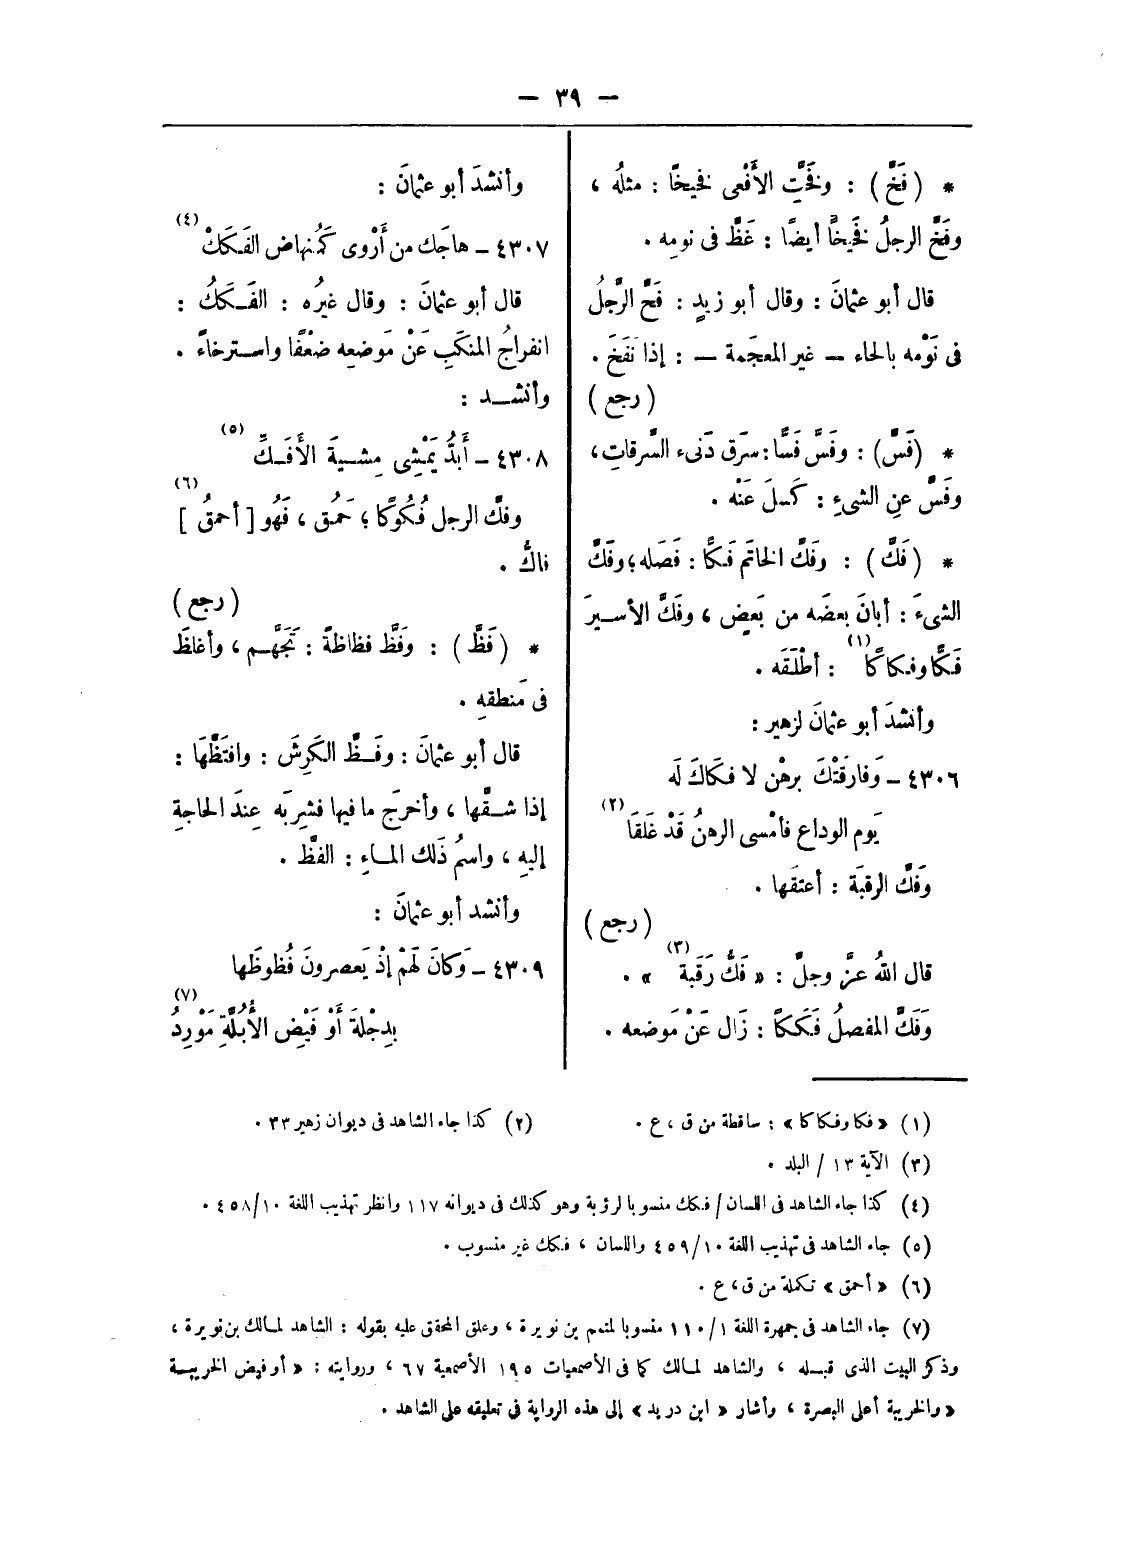 — ٣٩ —
* ( فَخَّ ) : وفَخَّتِ الأَفْعى فخيخًا : مثلُه ،
وفَخَّ الرجلُ فَخيخًا أيضًا : غَطَّ فى نومِه .
قال أبو عثمانَ : وقال أبو زيدٍ : فَحَّ الرَّجلُ
فى نَوْمه بالحاء — غير المعجَمة — : إذا نَفَخَ .
( رجع )
* (فَسَّ) : وفَسَّ فَسًّا : سرَق دَنىء السَّرقاتِ ،
وفَسَّ عنِ الشىءِ : كَسلَ عَنْه .
* ( فَكَّ ) : وَفَكَّ الخاتَم فَكًّا : فَصَله ؛ وفَكَّ
الشىءَ : أبانَ بعضَه من بَعضٍ ، وفكَّ الأسيرَ
فَكًّا وفكاكًا (١) : أطْلَقَه .
وأنشدَ أبو عثمانَ لزهير :
٤٣٠٦ – وَفارَقَتْكَ برهْن لا فكَاكَ لَه
يَوم الوداع فأمْسى الرهنُ قَدْ غَلقَا (٢)
وَفكَّ الرقبَة : أعتقَها .
( رجع )
قال اللهُ عزَّ وجلَّ : « فَكُّ رَقَبة (٣) » .
وَفَكَّ المفصلُ فَكَكًا : زَال عَنْ مَوضعه .
وأنشدَ أبو عثمانَ :
٤٣٠٧ – هاجَك من أَرْوى كَمُنهاض الفَكَكْ (٤)
قال أبو عثمانَ : وقال غيرُه : الفَكَكُ :
انفراجُ المنكَبِ عَنْ مَوضعِه ضعْفًا واسترخاءً .
وأنشد :
٤٣٠٨ – أَبَدُّ يَمْشِى مِشيةَ الأَفَكِّ (٥)
وفكَّ الرجل فُكُوكًا ؛ حَمُق ، فَهُو [ أحمقُ (٦) ]
فاكُّ .
( رجع )
* ( فَظَّ ) : وَفَظَّ فظاظةً : تَجَهَّم ، وأغلظَ
فى مَنطقهِ .
قال أبو عثمانَ : وفَظَّ الكَرِشَ : وافتَظَّهَا :
إذا شقَّها ، وأخرجَ ما فيها فشرِبَه عِندَ الحاجةِ
إليهِ ، واسمُ ذَلك الماءِ : الفَظّ .
وأنشد أبو عثمانَ :
٤٣٠٩ – وَكانَ لَهمْ إذْ يَعصرونَ فُظوظَها
بِدِجْلةَ أَوْ فَيْضِ الأُبُلَّةِ مَوْرِدُ (٧)
(١) « فكا وفكاكا » : ساقطة من ق ، ع .
(٢) كذا جاء الشاهد فى ديوان زهير ٣٣ .
(٣) الآية ١٣ / البلد .
(٤) كذا جاء الشاهد فى اللسان / فكك منسوبا لرؤبة وهو كذلك فى ديوانه ١١٧ وانظر تهذيب اللغة ١٠/٤٥٨ .
(٥) جاء الشاهد فى تهذيب اللغة ١٠/٤٥٩ واللسان ، فكك غير منسوب .
(٦) « أحمق » تكملة من ق ، ع .
(٧) جاء الشاهد فى جمهرة اللغة ١/١١٠ منسوبا لمتمم بن نويرة ، وعلق المحقق عليه بقوله : الشاهد لمالك بن نويرة ،
وذكر البيت الذى قبله ، والشاهد لمالك كما فى الأصمعيات ١٩٥ الأصمعية ٦٧ ، وروايته : « أو فيض الخريبة
« والخريبة أعلى البصرة ، وأشار « ابن دريد » إلى هذه الرواية فى تعليقه على الشاهد .